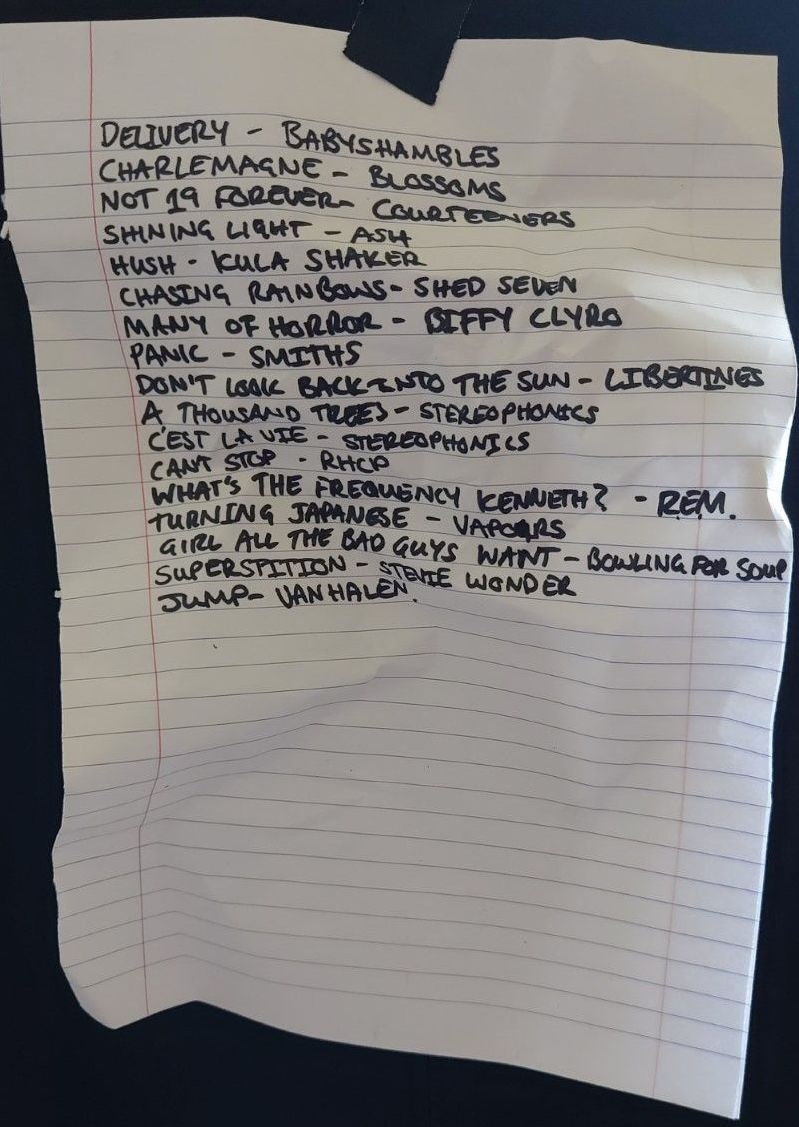 DELIVERY - BABYSHAMBLES
CHARLEMAGNE - BLOSSOMS
NOT 19 FOREVER - COURTEENERS
SHINING LIGHT - ASH
HUSH - KULA SHAKER
CHASING RAINBOWS - SHED SEVEN
MANY OF HORROR - BIFFY CLYRO
PANIC - SMITHS
DON'T LOOK BACK INTO THE SUN - LIBERTINES
A THOUSAND TREES - STEREOPHONICS
C'EST LA VIE - STEREOPHONICS
CANT STOP - RHCP
WHAT'S THE FREQUENCY KENNETH? - R.E.M.
TURNING JAPANESE - VAPOURS
GIRL ALL THE BAD GUYS WANT - BOWLING FOR SOUP
SUPERSPITION - STEVIE WONDER
JUMP - VAN HALEN.